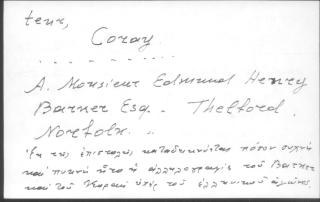 teur,
Coray
A. Monsieur Edmund Henry
Barker Esq. - Thetford.
Norfolk. ..
Ἐκ τῆς ἐπιστολῆς καταδεικνύεται πόσον συχνὴ
καὶ πυκνὴ ἦτο ἡ ἀλληλογραφία τοῦ Barker
καὶ τοῦ Κοραῆ ὑπὲρ τοῦ ἑλληνικοῦ ἀγῶνος.